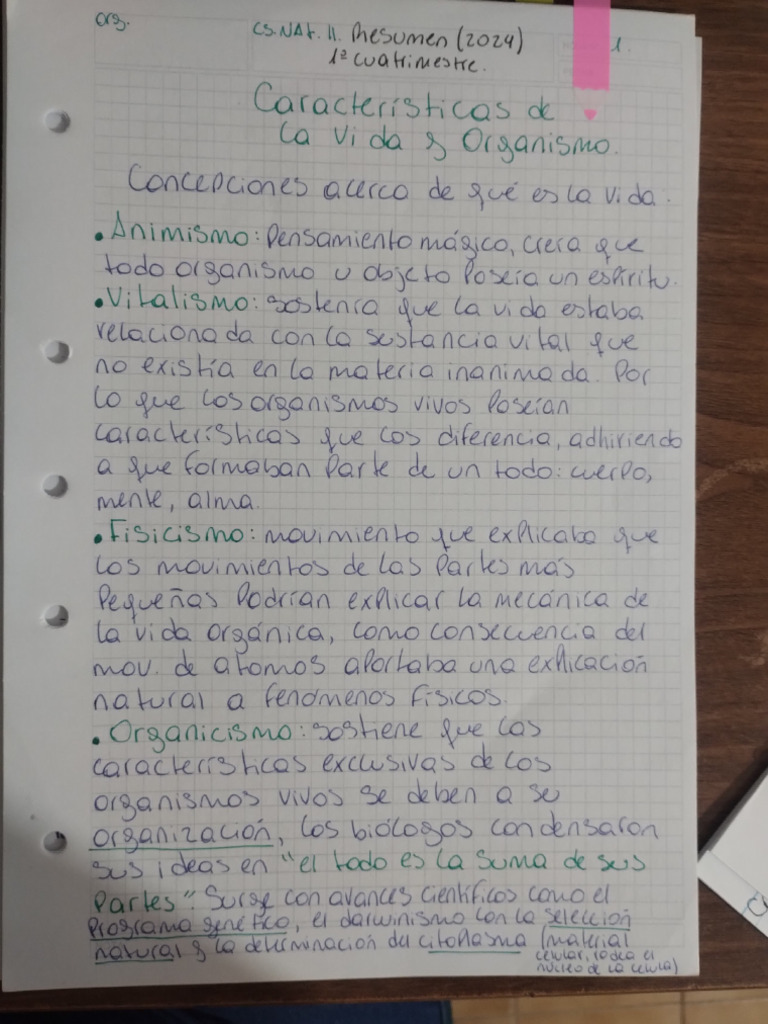 org.
CS.NAt. II. Resumen (2024) 1.
1º cuatrimestre.
Características de
la vida y Organismo.
Concepciones acerca de qué es la vida.
• Animismo: Pensamiento mágico, creía que
todo organismo u objeto Poseía un espíritu.
• Vitalismo: sostenía que la vida estaba
relacionada con la sustancia vital que
no existía en la materia inanimada. Por
lo que los organismos vivos Poseían
características que los diferencia, adhiriendo
a que formaban Parte de un todo: cuerpo,
mente, alma.
• Fisicismo: movimiento que explicaba que
los movimientos de las Partes más
Pequeñas Podrían explicar la mecánica de
la vida orgánica, como consecuencia del
mov. de atomos aportaba una explicación
natural a fenómenos físicos.
• Organicismo: sostiene que las
características exclusivas de los
organismos vivos se deben a se
organización, los biólogos condensaron
sus ideas en "el todo es la suma de sus
Partes". Surge con avances científicos como el
Programa genético, el darwinismo con la selección
natural y la determinación del citoplasma (material
celular, rodea el
núcleo de la celula)